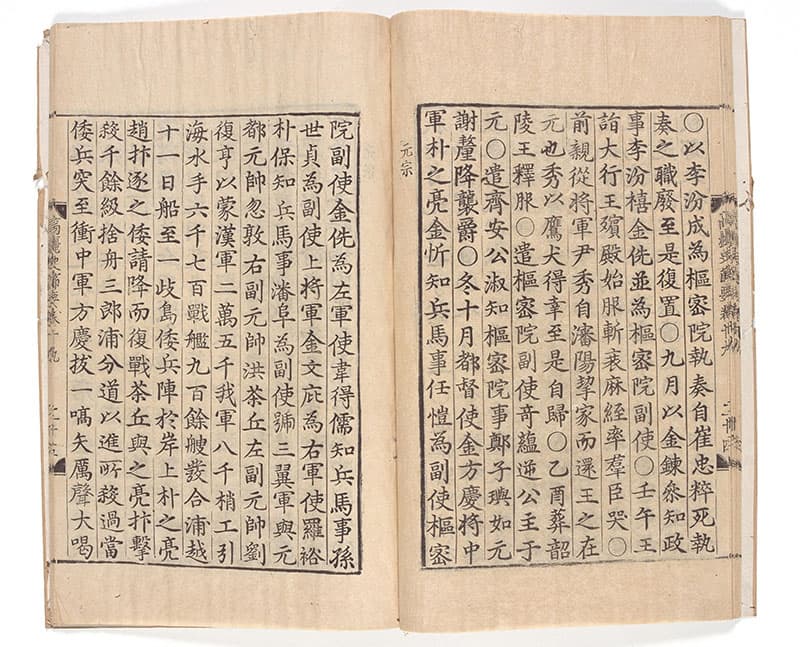 ○以李汾成為樞密院執奏自崔忠粹死執
奏之職廢至是復置○九月以金鍊叅知政
事李汾禧金侁並為樞密院副使○壬午王
詣大行王殯殿始服斬衰麻絰率羣臣哭○
前親從將軍尹秀自瀋陽挈家而還王之在
元也秀以鷹犬得幸至是自歸○乙酉葬韶
陵王釋服○遣樞密院副使奇蘊迎公主于
元○遣齊安公淑知樞密院事鄭子璵如元
謝釐降襲爵○冬十月都督使金方慶將中
軍朴之亮金忻知兵馬事任愷為副使樞密
元宗
院副使金侁為左軍使韋得儒知兵馬事孫
世貞為副使上將軍金文庇為右軍使羅裕
朴保知兵馬事潘阜為副使號三翼軍與元
都元帥忽敦右副元帥洪茶丘左副元帥劉
復亨以蒙漢軍二萬五千我軍八千梢工引
海水手六千七百戰艦九百餘艘發合浦越
十一日船至一歧島倭兵陣於岸上朴之亮
趙抃逐之倭請降而復戰茶丘與之亮抃擊
殺千餘級捨舟三郎浦分道以進所殺過當
倭兵突至衝中軍方慶拔一嗃矢厲聲大喝